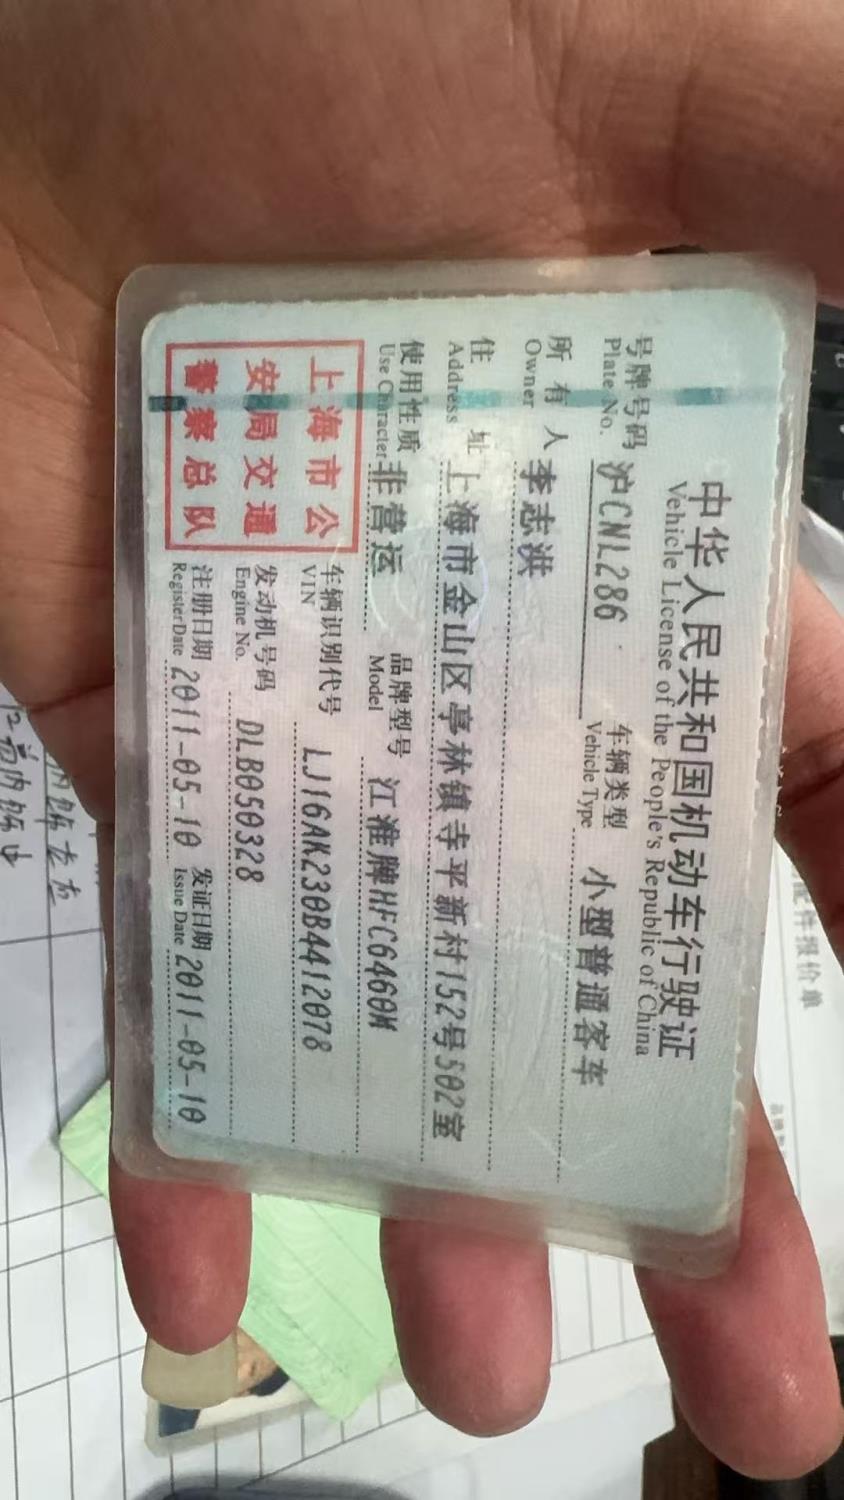 中华人民共和国机动车行驶证
Vehicle License of the People's Republic of China
号牌号码 沪CNL286 车辆类型 小型普通客车
Plate No. Vehicle Type
所有人 李志洪
Owner
住址 上海市金山区亭林镇寺平新村152号502室
Address
使用性质 非营运 品牌型号 江淮牌HFC6460M
Use Character Model
上海市公
安局交通
警察总队
车辆识别代号 LJ16AK230B4412078
VIN
发动机号码 DLB050328
Engine No.
注册日期 2011-05-10 发证日期 2011-05-10
Register Date Issue Date
配件报价单